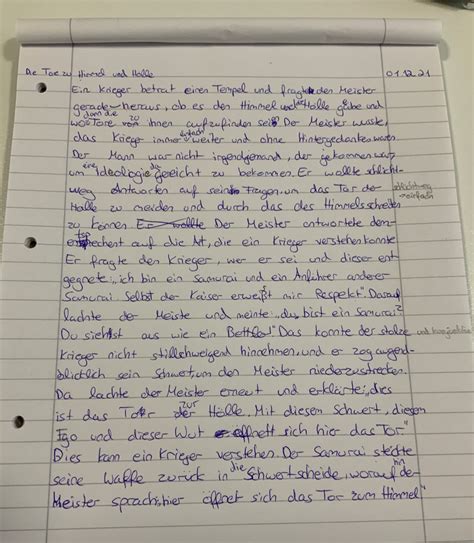 Die Tore zu Himmel und Hölle 01.12.21
Ein Krieger betrat einen Tempel und fragte den Meister
gerade heraus, ob es den Himmel und die Hölle gäbe und
wo dann die Tore zu ihnen aufzufinden sei. Der Meister wusste,
das Krieger immer einfach weiter und ohne Hintergedanken waren.
Der Mann war nicht irgendjemand, der gekommen war
um eine Ideologie gereicht zu bekommen. Er wollte schlicht-
weg Antworten auf seine Fragen, um das Tor der
Hölle zu meiden und durch das des Himmels schreiten
zu können. Der Meister antwortete dem-
entsprechent auf die Art, die ein Krieger verstehen konnte
Er fragte den Krieger, wer er sei und dieser ent
gegnete „ich bin ein Samurai und ein Anführer anderer
Samurai. Selbst der Kaiser erweißt mir Respekt". Darauf
lachte der Meister und meinte „du bist ein Samurai?
Du siehst aus wie ein Bettler!" Das konnte der stolze
Krieger nicht stillschweigend hinnehmen, und er zog augen-
blicklich sein Schwert, um den Meister niederzustrecken.
Da lachte der Meister erneut und erklärte: „dies
ist das Tor zur Hölle. Mit diesen Schwert, diesen
Ego und dieser Wut öffnett sich hier das Tor"
Dies kam ein Krieger verstehen. Der Samurai steckte
seine Waffe zurück in die Schwertscheide, worauf der
Meister sprach: „hier öffnet sich das Tor zum Himmel"